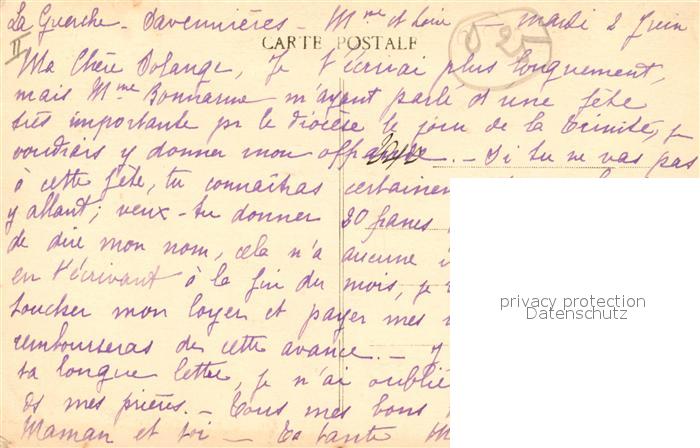 La Guerche - Savennières - Mne et Loire - Mardi 2 Juin
II
CARTE POSTALE
D 25
Ma Chère Solange, Je t'écrirai plus longuement,
mais Mme Bonnanne m'ayant parlé d'une fête
très importante pr le diocèse le jour de la Trinité, je
voudrais y donner mon offrande. - Si tu ne vas pas
à cette fête, tu connaîtras
y allant; veux-tu donner 20 francs
de dire mon nom, cela n'a aucune
en t'écrivant à la fin du mois, je
toucher mon loyer et payer mes
rembourseras de cette avance. -
ta longue lettre, je n'ai
ds mes prières. - Tous mes bons
Maman et toi - Ta tante
privacy protection
Datenschutz